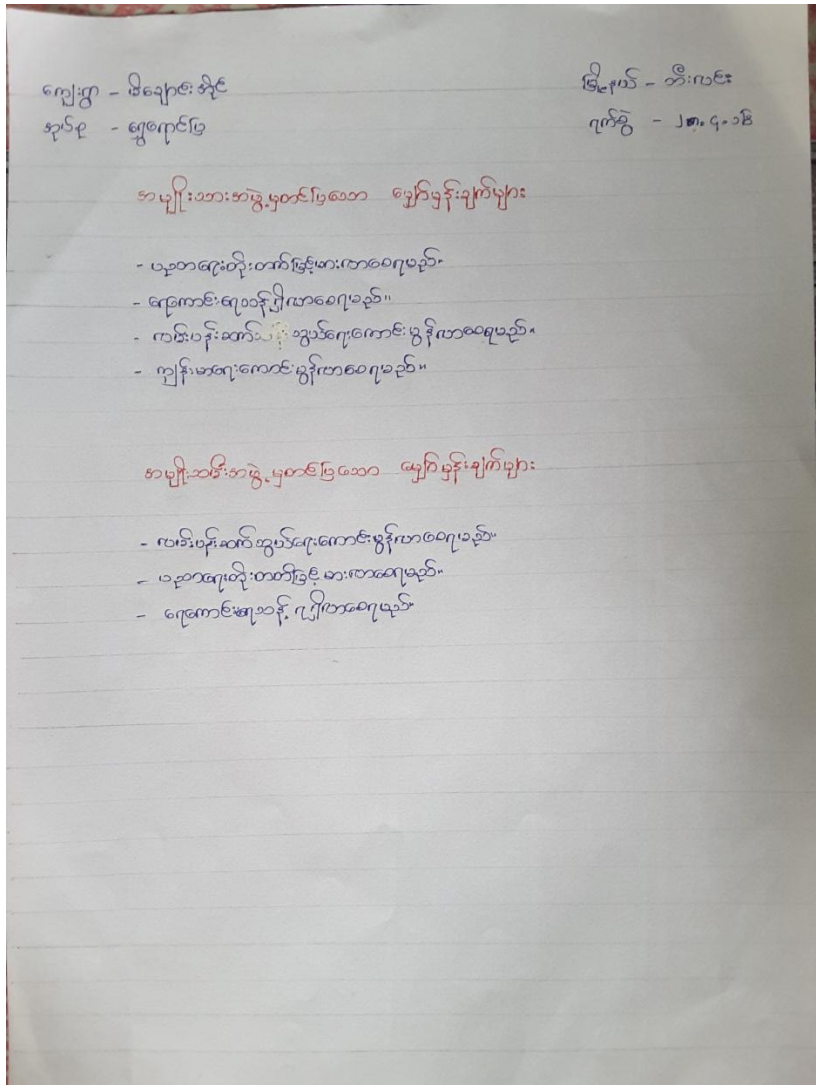 ကျေးရွာ - မိချောင်းအိုင် မြို့နယ် - ဘီးလင်း
အုပ်စု - ရွှေရောင်ပြ ရက်စွဲ - ၂၈.၄.၁၆
အမျိုးသားအဖွဲ့မှတင်ပြသော မျှော်မှန်းချက်များ
- ပညာရေးတိုးတက်မြင့်မားလာစေရမည်။
- ရေကောင်းရေသန့်ရှိလာစေရမည်။
- လမ်းပန်းဆက်သွယ်ရေးကောင်းမွန်လာစေရမည်။
- ကျန်းမာရေးကောင်းမွန်လာစေရမည်။
အမျိုးသမီးအဖွဲ့မှတင်ပြသော မျှော်မှန်းချက်များ
- လမ်းပန်းဆက်သွယ်ရေးကောင်းမွန်လာစေရမည်။
- ပညာရေးတိုးတတ်မြင့်မားလာစေရမည်။
- ရေကောင်းရေသန့်ရရှိလာစေရမည်။